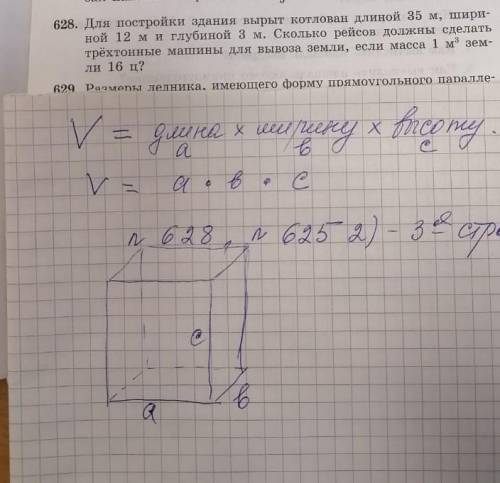 628. Для постройки здания вырыт котлован длиной 35 м, шири-
ной 12 м и глубиной 3 м. Сколько рейсов должны сделать
трёхтонные машины для вывоза земли, если масса 1 м³ зем-
ли 16 ц?
629. Размеры ледника, имеющего форму прямоугольного паралле-
V = длина x ширину x высоту.
a в c
V = a · в · c
n 628, n 625 2) - 3
c
a
в